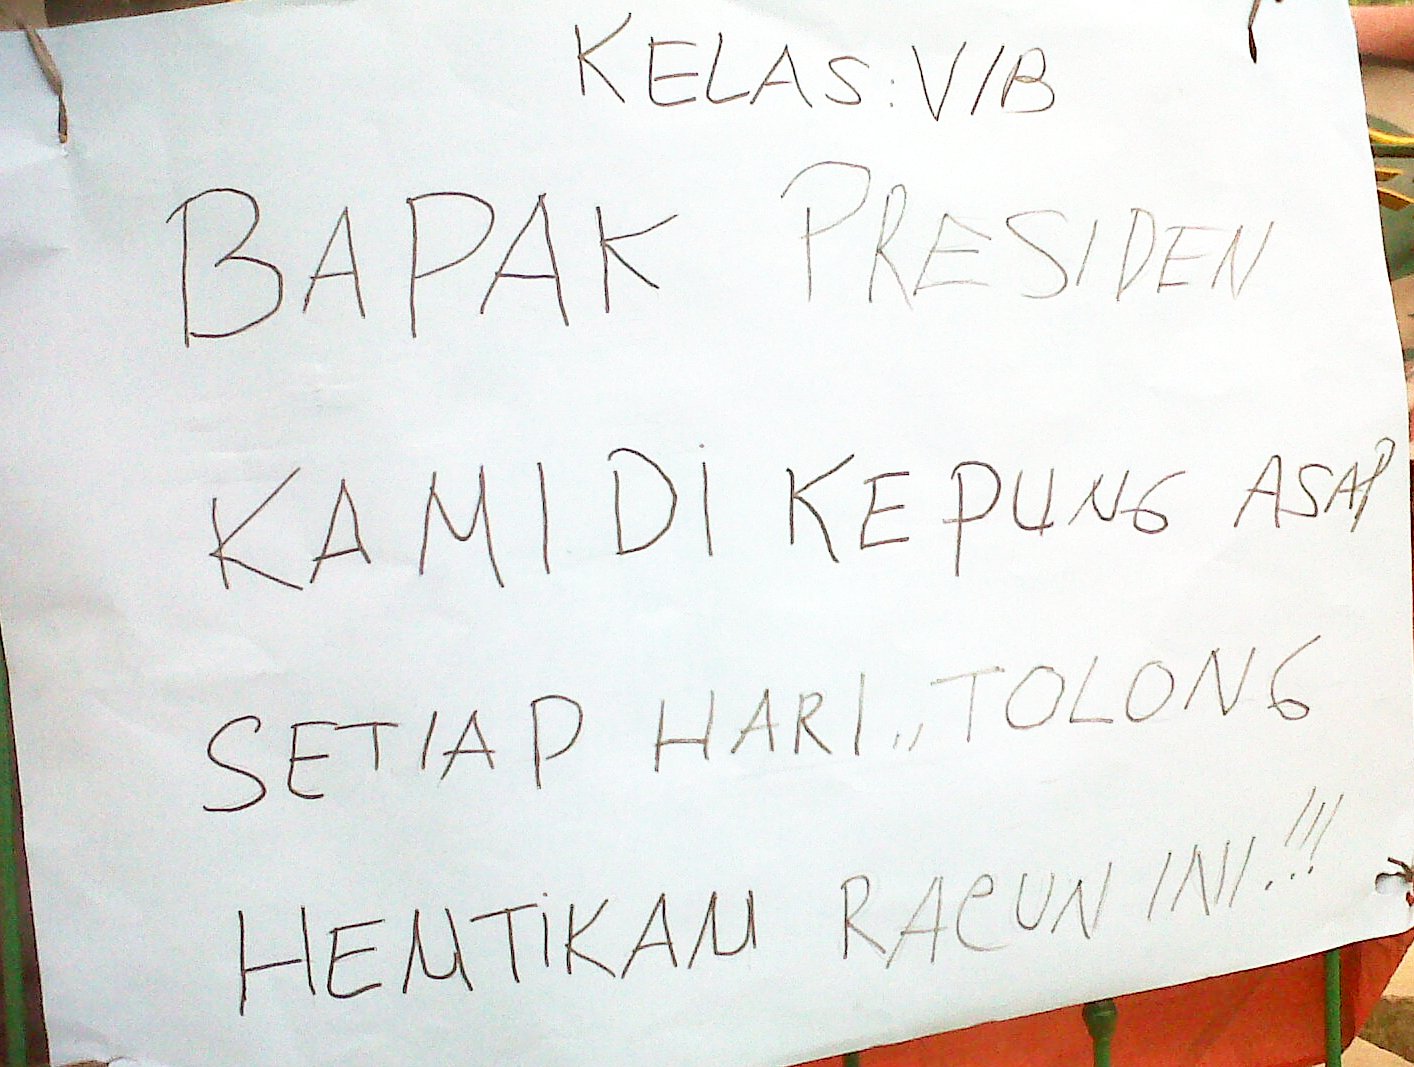 KELAS: V/B
BAPAK PRESIDEN
KAMI Di KEPUNG ASAP
SETIAP HARI.,, TOLONG
HENTiKAN RACUN INI.!!!